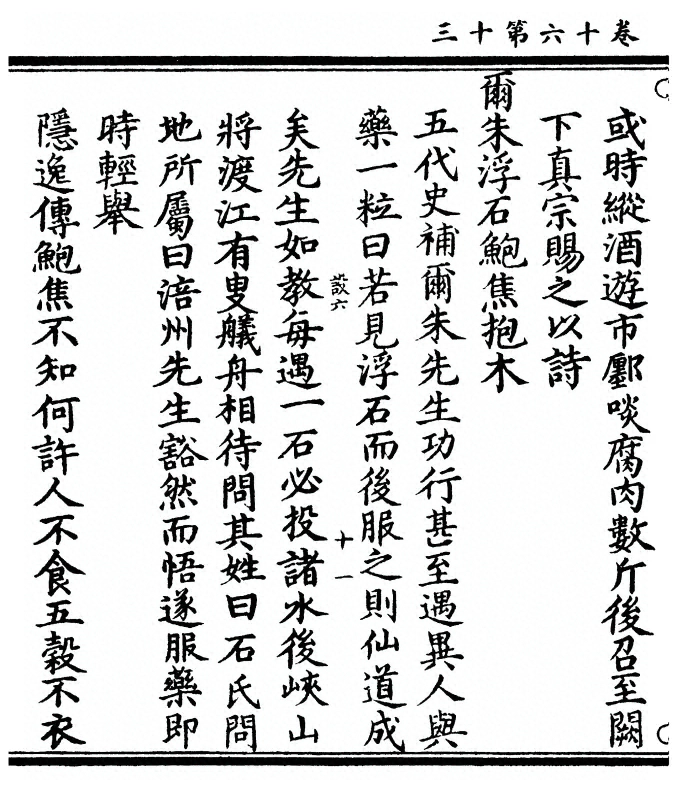 卷十六第十三
或時縱酒遊市鄽啖腐肉數斤後召至闕
下真宗賜之以詩
爾朱浮石鮑焦抱木
五代史補爾朱先生功行甚至遇異人與
藥一粒曰若見浮石而後服之則仙道成
設六
十一
矣先生如教每遇一石必投諸水後峽山
將渡江有叟艤舟相待問其姓曰石氏問
地所屬曰涪州先生豁然而悟遂服藥即
時輕舉
隱逸傳鮑焦不知何許人不食五穀不衣